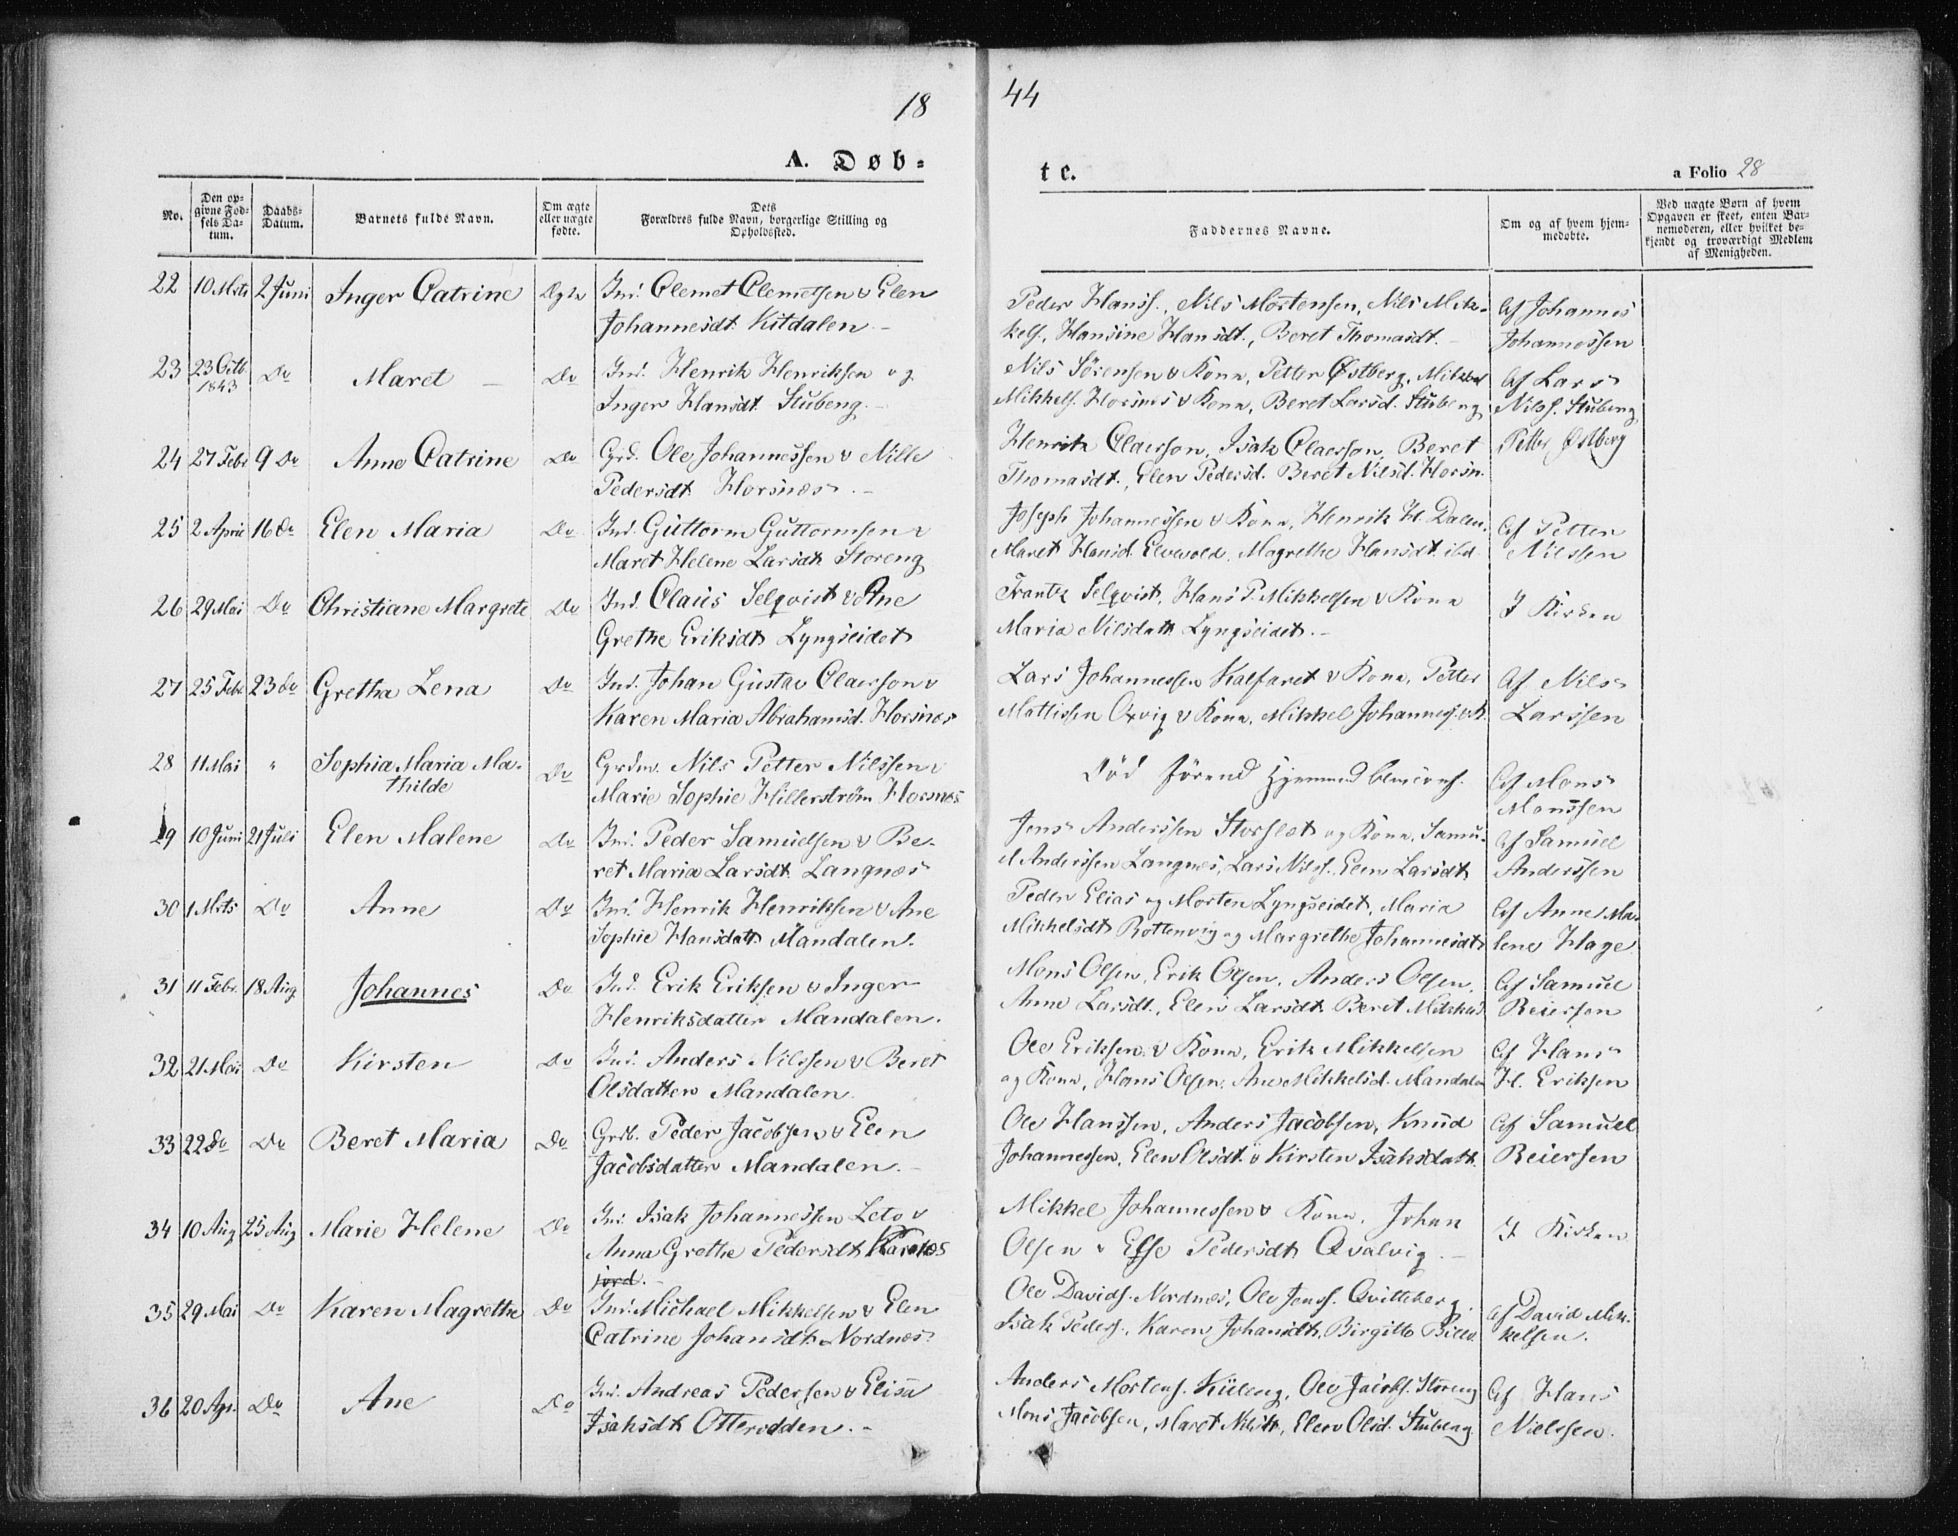 18 44
A. Døb-
te.
a Folio 28
No.
Den opgivne Fødsels Datum.
Daabs-Datum.
Barnets fulde Navn.
Om ægte eller uægte fødte.
Dets Forældres fulde Navn, borgerlige Stilling og Opholdssted.
Faddernes Navne.
Om og af hvem hjemmedøbte.
Ved uægte Børn af hvem Opgaven er skeet, enten Barnemoderen, eller hvilket bekjendt og troværdigt Medlem af Menigheden.
22 10 Mrts 2 Juni Inger Catrine Ægte Ind. Clemet Clemetsen & Elen
Johannesdt. Kitdalen.
Peder Hanss., Nils Mortensen, Nils Mik-
kels., Hansine Hansdt., Beret Thomasdt.
Af Johannes
Johannessen
23 23 Octb 1843 Do Maret Do Ind. Henrik Henriksen og
Inger Hansdt. Stubeng.
Nils Sørensen & Kona, Petter Østberg, Mikkel
Mikkels. Horsnes & Kona, Beret Larsd. Stubeng
Af Lars
Nilss. Stubeng
24 27 Febr 9 Do Anne Catrine Do Grd. Ole Johannessen & Nille
Pedersdt. Horsnæs.
Henrik Claesson, Isak Claesson, Beret
Thomasdt., Elen Pedersd. Beret Nilsd. Horsn.
Petter Østberg
25 2 April 16 Do Elen Maria Do Ind. Guttorm Guttormsen &
Maret Helene Larsdt. Storeng
Joseph Johannessen & Kona, Henrik H. Dalen,
Maret Hansd. Elvevold, Magrethe Hansdt. ibd
Af Petter
Nilssen
26 29 Mai Do Christiane Margrete Do Ind. Claus Selqvist & Ane
Grethe Eriksdt. Lyngseidet
Frantz Selqvist, Hans P. Mikkelsen & Kona
Maria Nilsdatt. Lyngseidet.
I Kirken
27 25 Febr 23 do Gretha Lena Do Ind. Johan Gustav Claesson &
Karen Maria Abrahamsd. Horsnæs
Lars Johannessen Kalfaret & Kona, Petter
Mattissen Oxvig & Kona, Mikkel Johanness. & K.
Af Nils
Larssen
28 11 Mai " Sophia Maria Ma-
thilde Do Grdm. Nils Petter Nilssen &
Marie Sophie Hillerström Horsnæs
Død førend Hjemmed
Af Mons
Monssen
29 10 Juni 21 Juli Elen Malene Do Ind. Peder Samuelsen & Be-
ret Maria Larsdt. Langnæs
Jens Anderssen Storslet og Kona, Samu-
el Anderssen Langnes, Lars Nilss. Elen Larsdt
Af Samuel
Anderssen
30 1 Mrts Do Anne Do Ind. Henrik Henriksen & Ane
Sophie Hansdatt. Mandalen.
Peder Elias og Morten Lyngseidet, Maria
Mikkelsdt Rottenvig og Margrethe Johannesdt
Af Anne Ma-
lene Hage
31 11 Febr. 18 Aug Johannes Do Ind. Erik Eriksen & Inger
Henriksdatter Mandalen.
Mons Olsen, Erik Olsen, Anders Olsen,
Anne Larsdt., Elen Larsdt. Beret Mikkelsd
Af Samuel
Reiersen
32 21 Mai Do Kirsten Do Ind. Anders Nilssen & Beret
Olsdatter Mandalen.
Ole Eriksen & Kona, Erik Mikkelsen
og Kona, Hans Olsen, Ane Mikkelsd. Mandalen
Af Hans
H. Eriksen
33 22 do Do Beret Maria Do Grdb. Peder Jacobsen & Elen
Jacobsdatter Mandalen.
Ole Hanssen, Anders Jacobsen, Knud
Johannessen, Elen Olsdt. & Kirsten Isaksdatt.
Af Samuel
Reiersen
34 10 Aug 25 Aug Marie Helene Do Ind. Isak Johannessen Leto &
Anna Grethe Pedersdt Karnæs
jord.
Mikkel Johannessen & Kona, Johan
Olsen & Else Pedersdt Qvalvig.
I Kirken
35 29 Mai Do Karen Magrethe Do Ind. Michael Mikkelsen & Elen
Catrine Johansdt. Nordnæs
Ole Davids. Nordnæs, Ole Jenss. Qvitteberg
Isak Peders., Karen Johansdt., Birgitte
Af David Mik-
kelsen.
36 20 Apr. Do Ane Do Ind. Andreas Pedersen & Elisa
Isaksdt Otterodden.
Anders Mortens. Kileng, Ole Jacobs. Storeng
Mons Jacobsen, Maret Nilsdt., Elen Olsd. Stubeng
Af Hans
Nielssen.